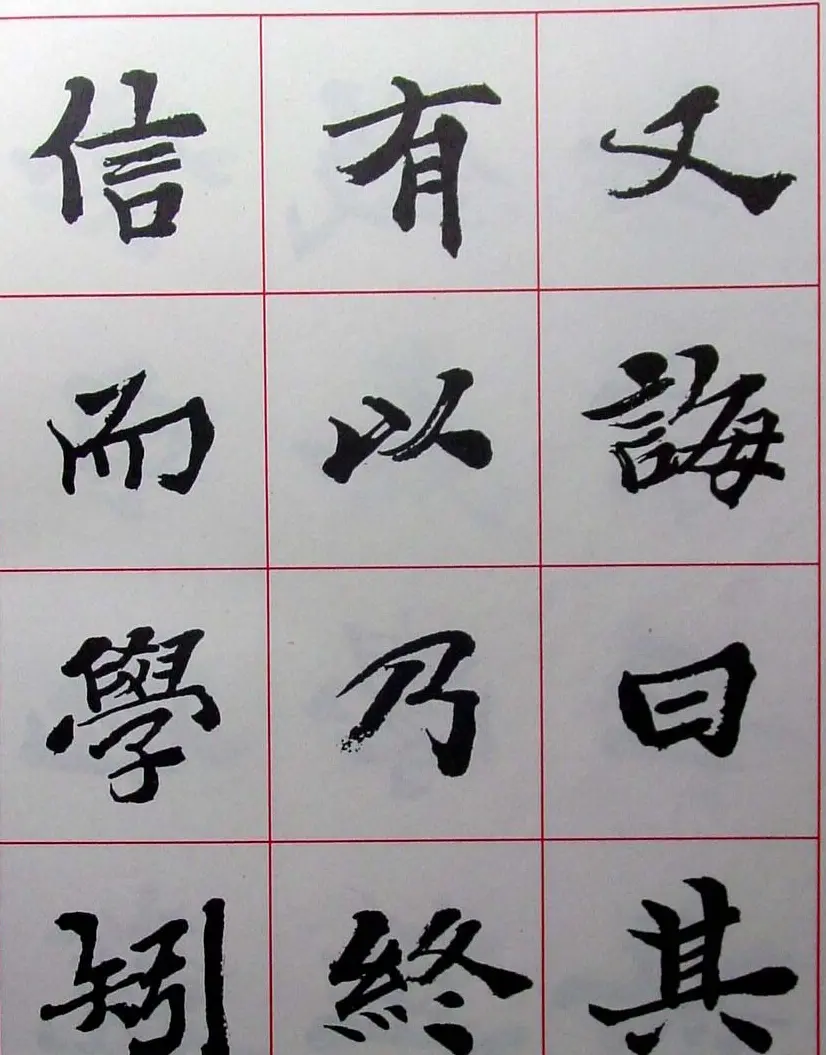 又誨曰其
有以乃終
信而學矧